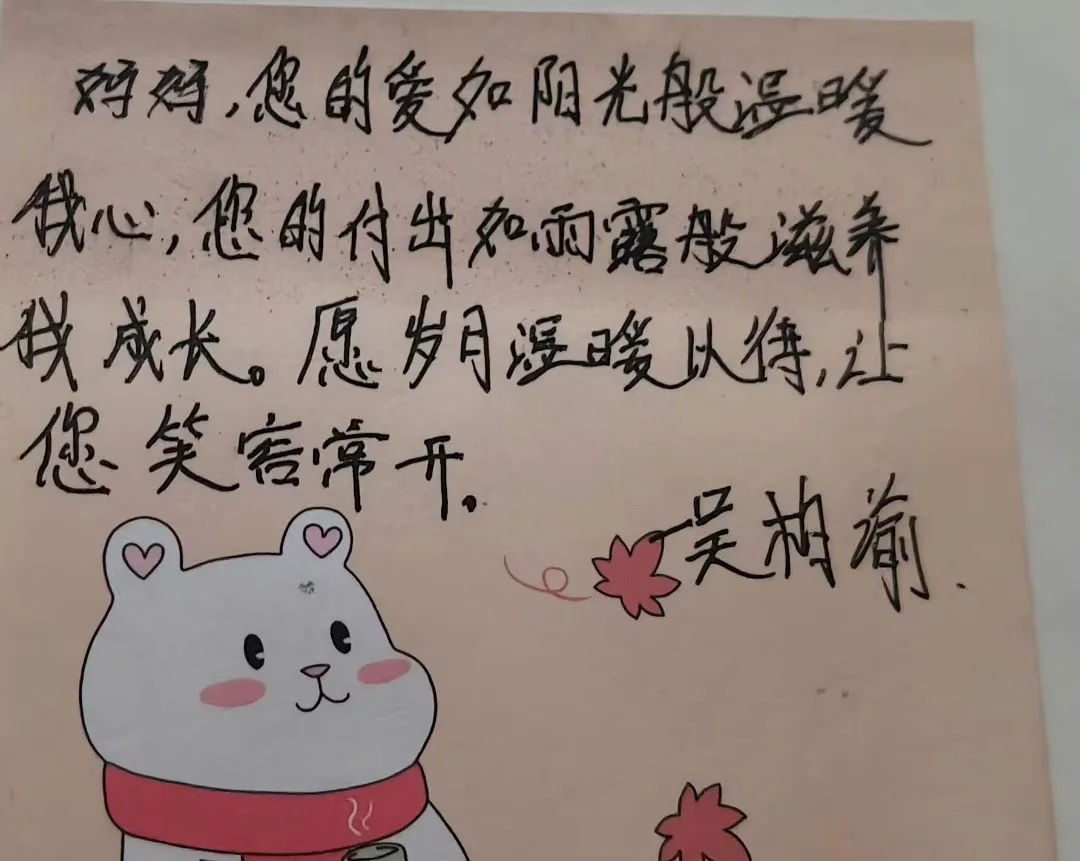 妈妈,您的爱如阳光般温暖
我心,您的付出如雨露般滋养
我成长。愿岁月温暖以待,让
您笑容常开。
吴柏瑜.